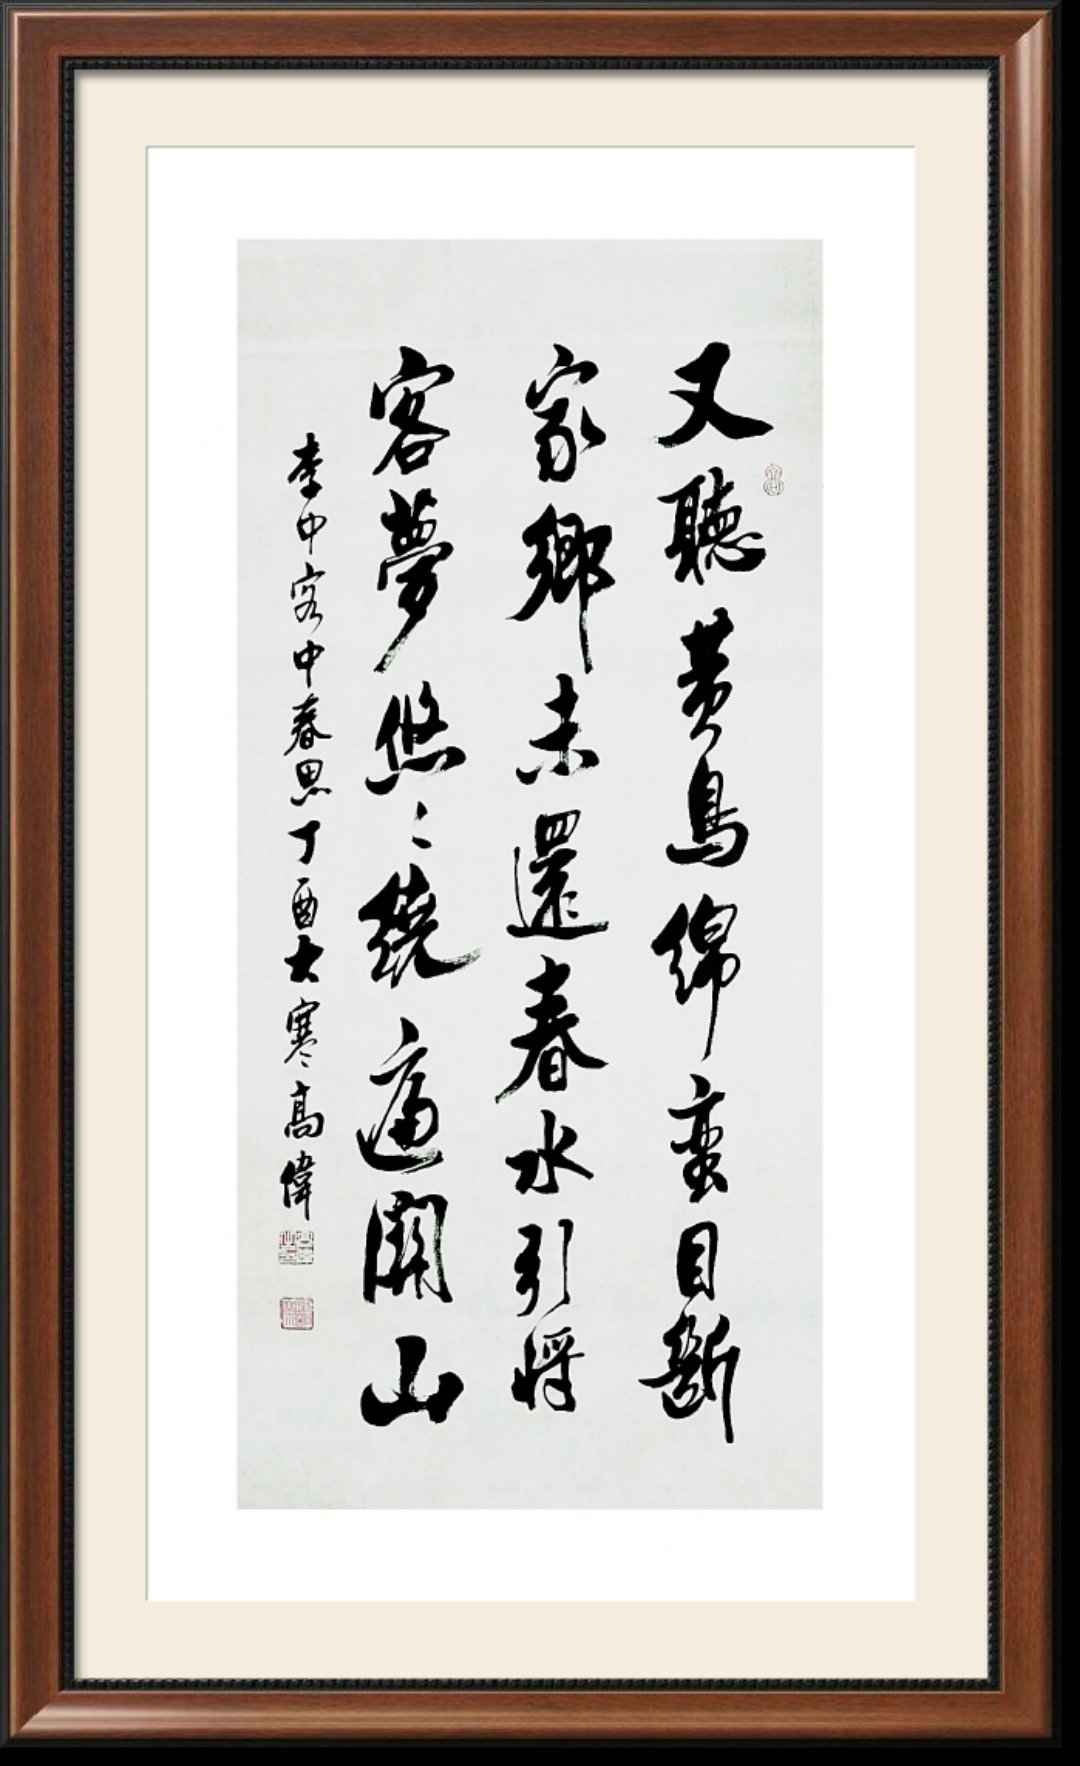 又聽黃鳥綿蠻目斷
家鄉未還春水引將
客夢悠〻繞遍關山
李中客中春思丁酉大寒高偉